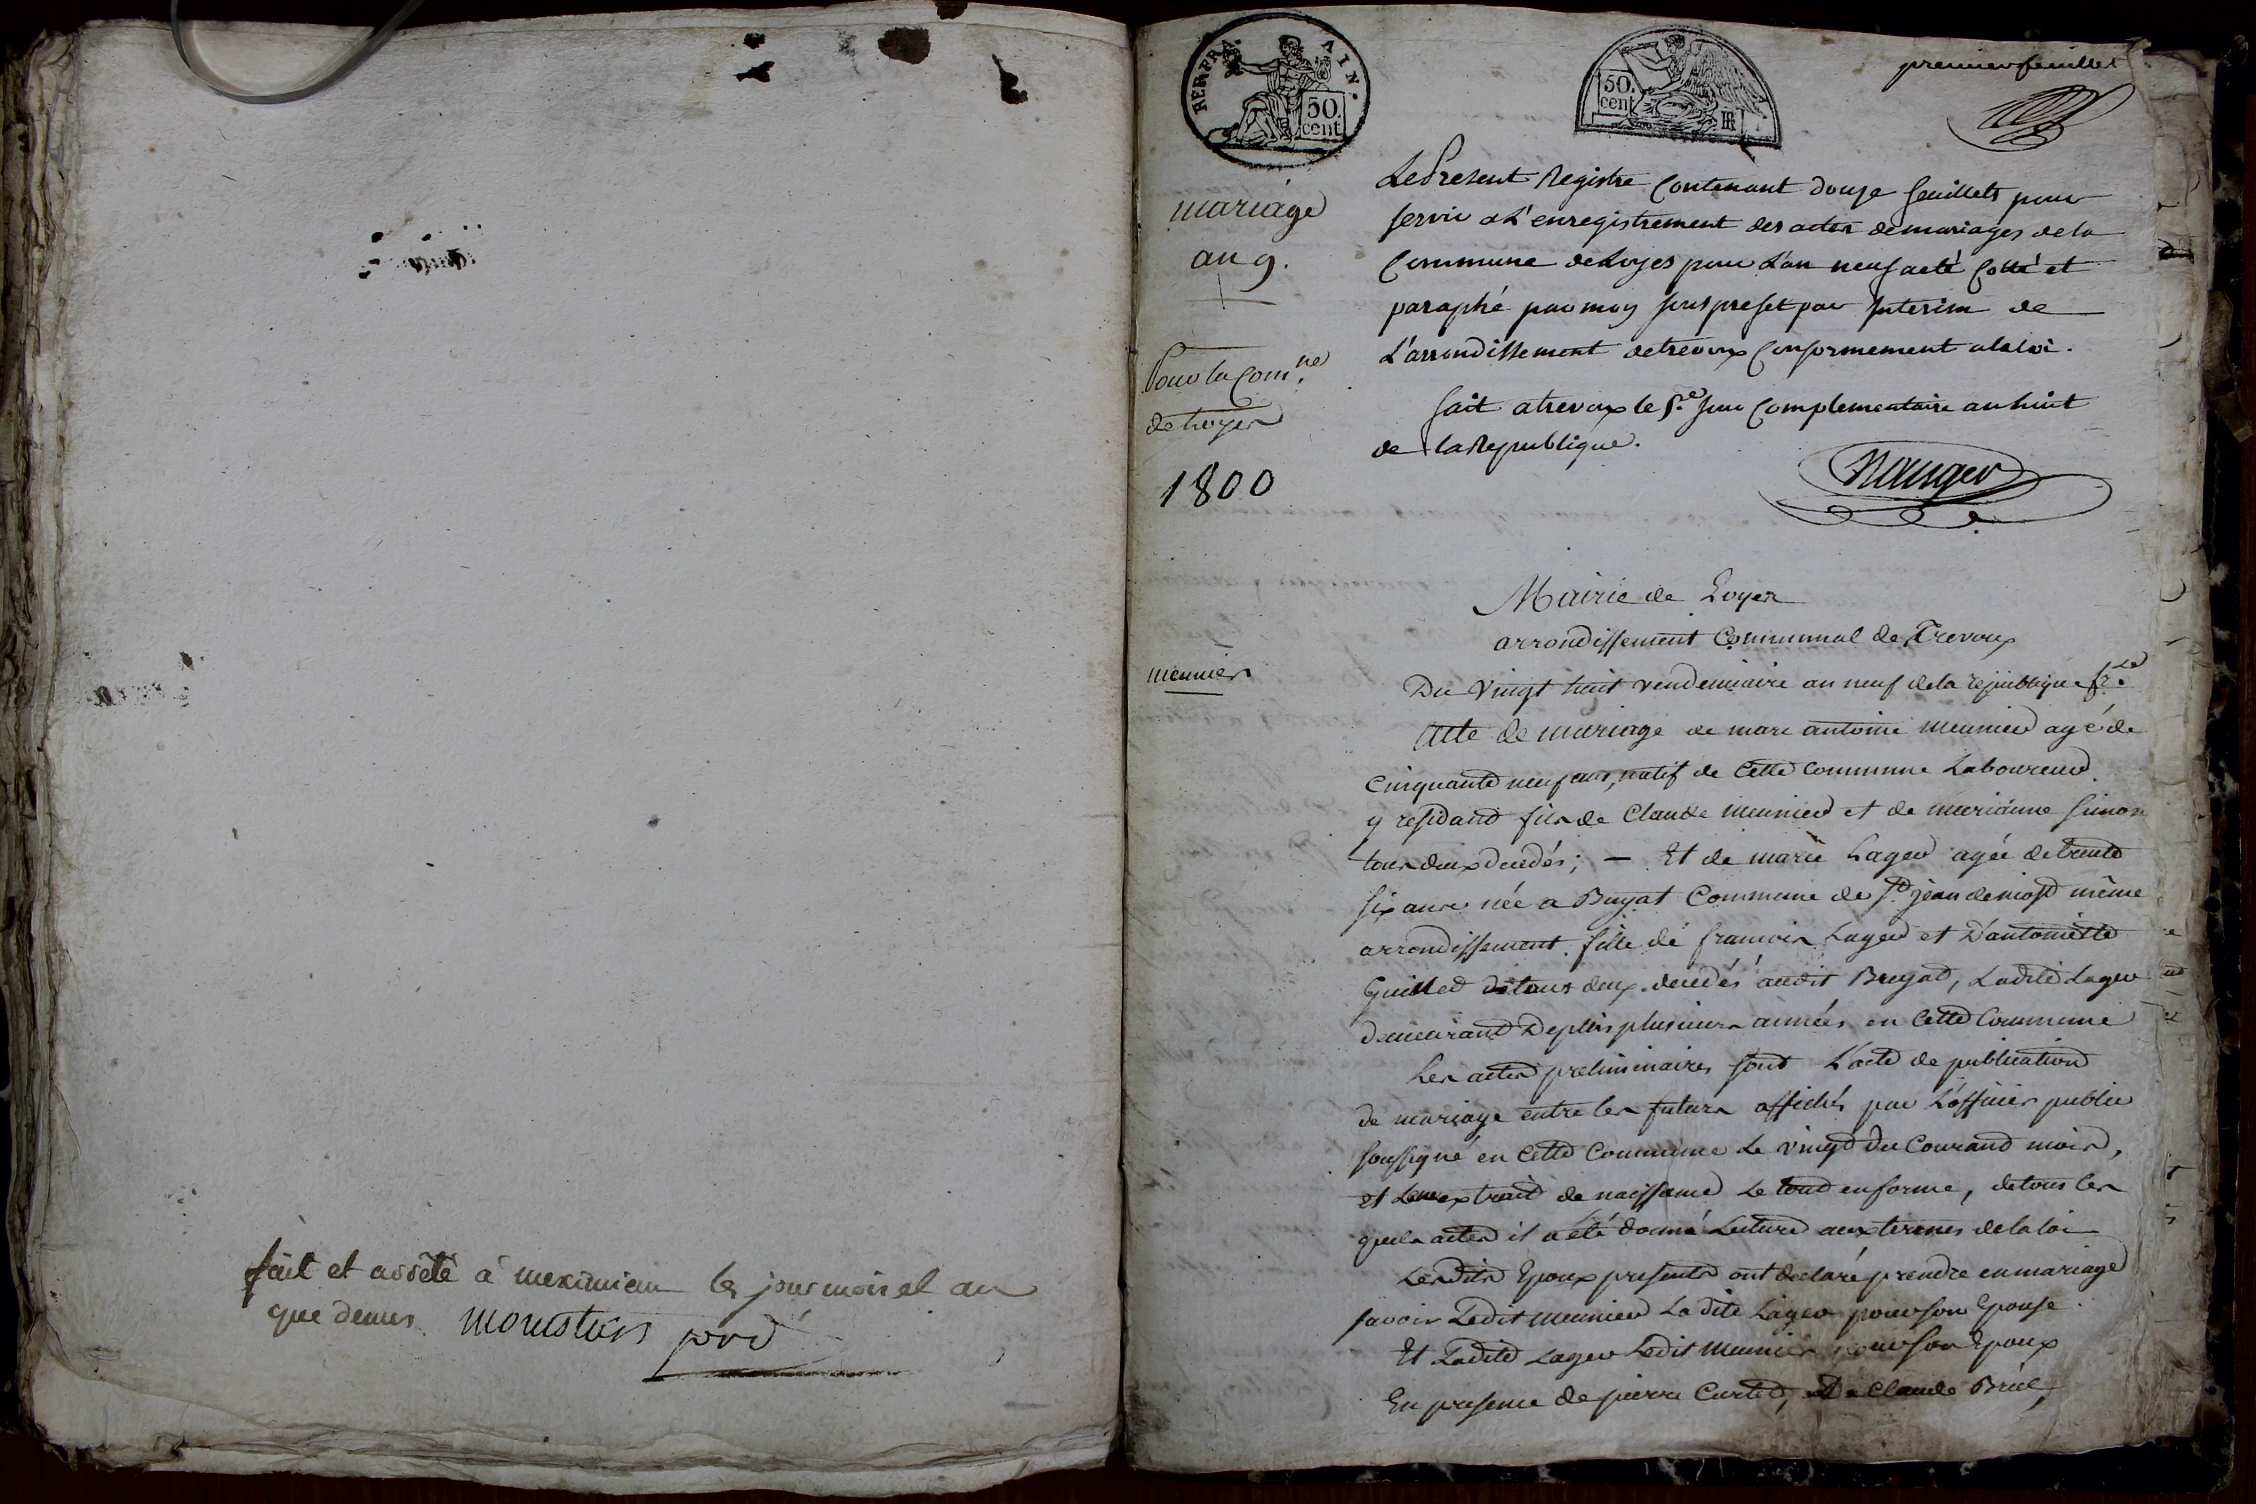 fait et arrêté à meximieux les jour mois et an
que dessus
REP.FRA.
AIN.
50.
cent.
50.
cent.
premier feuillet
mariage
an 9.
Pour la Com.ne
de Loyes
1800
Le Present Registre Contenant douze feuillets pour
servir a L'enregistrement des actes de mariages de la
Commune de Loyes pour L'an neuf a eté Cotté et
paraphé par moy sous prefet par Interim de
L'arrondissement de trevoux Conformement a la loi.
fait a trevoux le 5.e Jour Complementaire an huit
de la Republique.
Mairie de Loyes
arrondissement Communal de Trevoux
meunier
Du Vingt huit vendemiaire an neuf de la republique fr.se
Acte de mariage de marc antoine meunier agé de
Cinquante neuf ans, natif de Cette Commune Laboureur
y residant fils de Claude meunier et de marianne simon
tous deux decedés; — Et de marie Lager agée de trente
six ans née a Buyat Commune de St. jean de niost même
arrondissement fille de francois Lager et D'antoinette
Guillet tous deux decedés audit Bugat, Ladite Lager
demeurant Depuis plusieurs années en Cette Commune
Les actes preliminaires sont L'acte de publication
de mariage entre les futurs affichés par L'officier public
soussigné en Cette Commune Le vingt du Courant mois,
et Leur extrait de naissance Le tout en forme, de tous les
quels actes il a été donné Lecture aux termes de la loi
Lesdits Epoux presents ont declaré prendre en mariage
savoir Ledit meunier La dite Lager pour son Epouse
Et Ladite Lager Ledit meunier pour son Epoux
En presence de pierre Curtet, De Claude Briel,